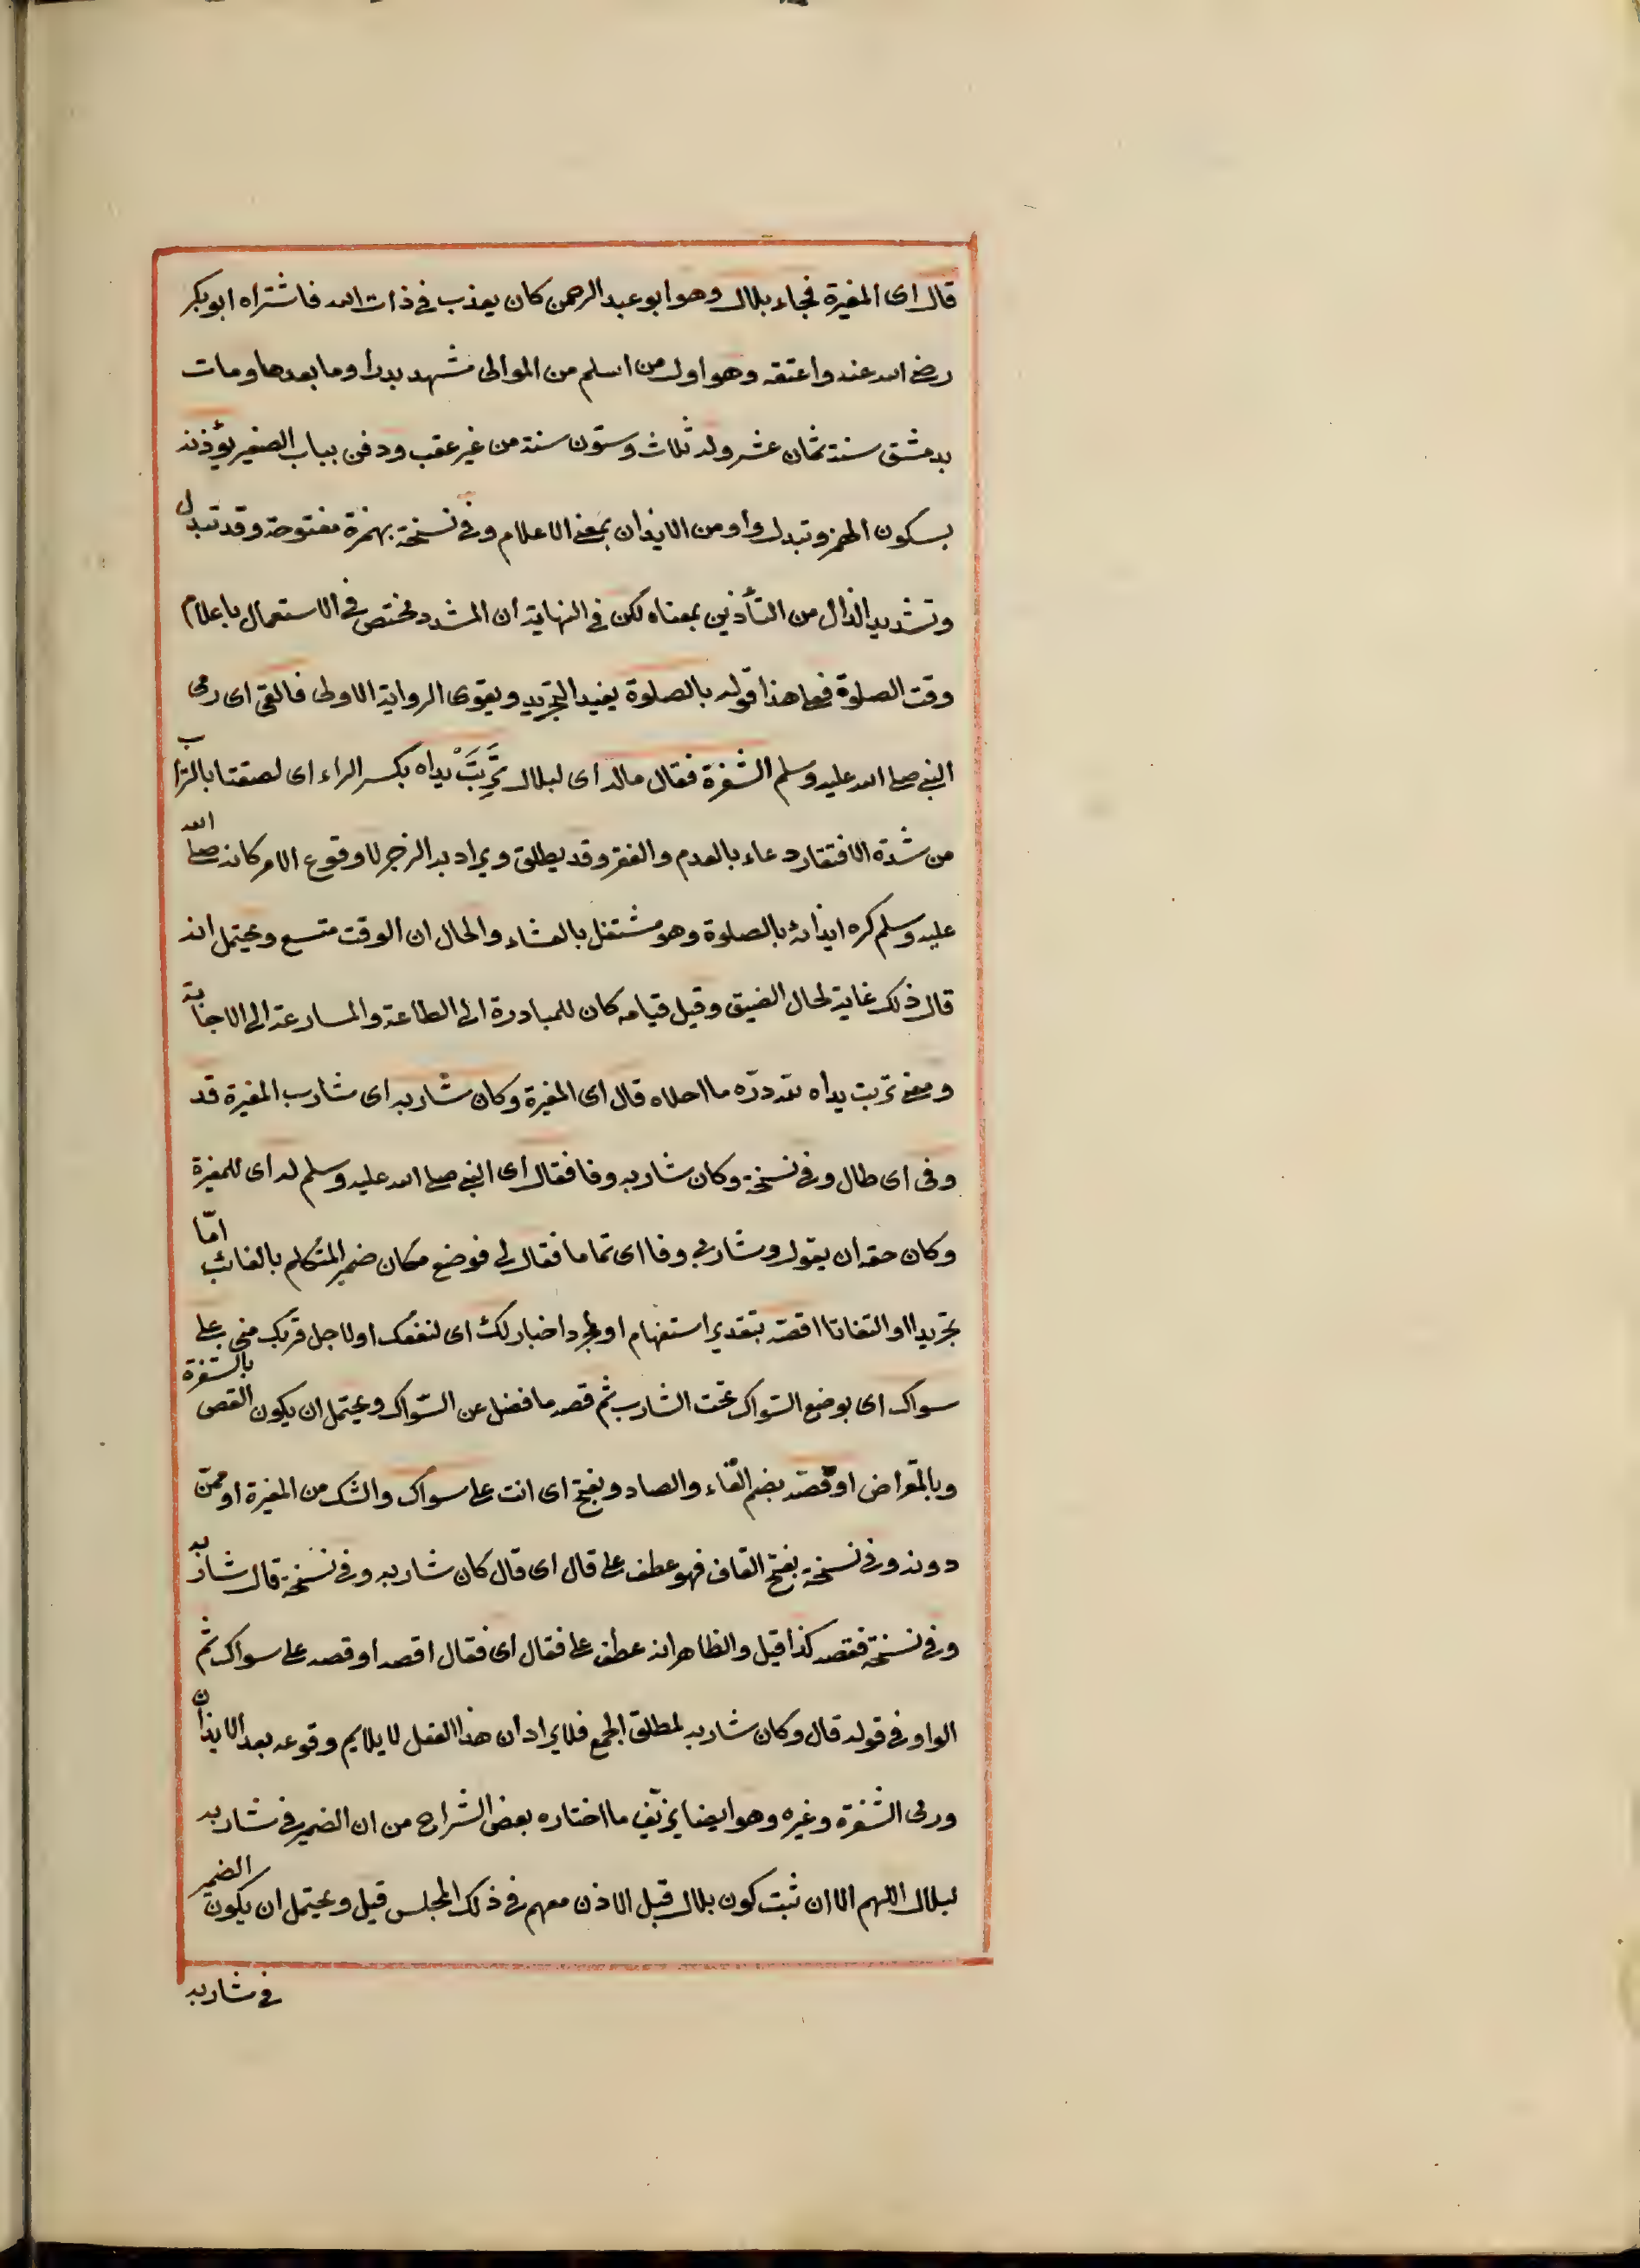 قال اى المغيرة فجاء بلال وهو ابو عبد الرحمن كان يعذب فى ذات الله فاشتراه ابو بكر
رضى الله عنه واعتقه وهو اول من اسلم من الموالى شهد بدرا وما بعدها ومات
بدمشق سنة ثمان عشر وله ثلاث وستون سنة من غير عقب ودفن بباب الصغير يؤذنه
بسكون الهمز وتبدل واو من الايذان بمعنى الاعلام وفى نسخة بهمزة مفتوحة وقد تبدل
وتشديد الذال من التأذين بمعناه لكن فى النهاية ان المشدد مختص فى الاستعمال باعلام
وقت الصلوة فعلى هذا قوله بالصلوة يفيد التجريد ويقوى الرواية الاولى فالقى اى رمى
النبى صلى الله عليه وسلم الشفرة فقال ماله اى لبلال تَرِبَتْ يداه بكسر الراء اى لصقتا بالتراب
من شدة الافتقار دعاء بالعدم والفقر وقد يطلق ويراد به الزجر لا وقوع الامر كانه صلى الله
عليه وسلم كره ايذانه بالصلوة وهو مشتغل بالعشاء والحال ان الوقت متسع ويحتمل انه
قال ذلك غاية لحال الضيق وقيل قيامه كان للمبادرة الى الطاعة والمسارعة الى الاجابة
ومعنى تربت يداه لله درّه ما احلاه قال اى المغيرة وكان شاربه اى شارب المغيرة قد
وفى اى طال وفى نسخة وكان شاربه وفا فقال اى النبى صلى الله عليه وسلم له اى للمغيرة
وكان حقه ان يقول وشاربى وفا اى تماما فقال لى فوضع مكان ضمير المتكلم بالغائب امّا
تجريدا او التفاتا اقصّه بتقدير استفهام او مجرد اخبار لك اى لنفعك او لاجل قربك منى على
سواك اى بوضع السّواك تحت الشارب ثم قصه ما فضل عن السّواك ويحتمل ان يكون القص بالشفرة
وبالمقراض او قصّه بضم القاء والصاد وبفتح اى انت على سواك والشك من المغيرة او ممّن
دونه وفى نسخة بفتح القاف فهو عطف على قال اى قال كان شاربه وفى نسخة قال شاربه
وفى نسخة فقصه كذا قيل والظاهر انه عطف على فقال اى فقال اقصه او قصه على سواك ثم
الواو فى قوله قال وكان شاربه لمطلق الجمع فلا يراد ان هذا الفعل لا يلايم وقوعه بعد الايذان
ورمى الشفرة وغيره وهو ايضا يزيّف ما اختاره بعض الشراح من ان الضمير فى شاربه
لبلال اللهم الا ان ثبت كون بلال قبل الاذن معهم فى ذلك المجلس قيل ويحتمل ان يكون الضمير
فى شاربه